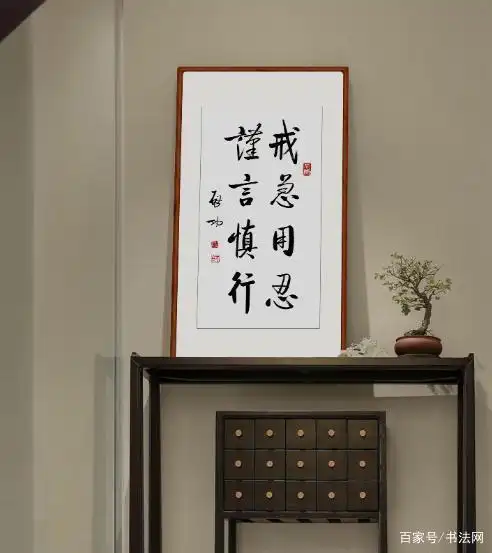 戒急用忍
謹言慎行
啟功
百家号/书法网